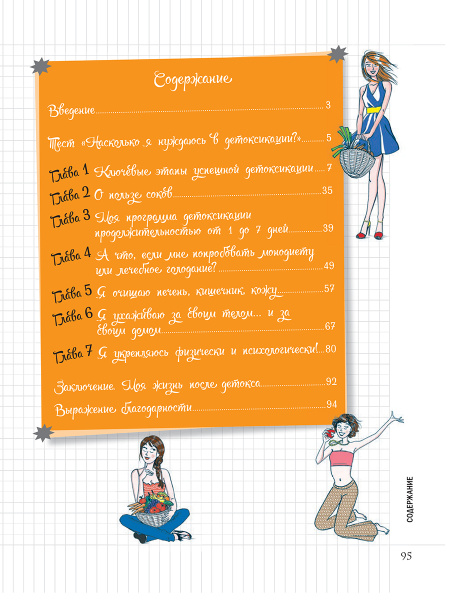 Содержание
Введение 3
Тест «Насколько я нуждаюсь в детоксикации?» 5
Глава 1 Ключевые этапы успешной детоксикации 7
Глава 2 О пользе соков 35
Глава 3 Моя программа детоксикации
продолжительностью от 1 до 7 дней 39
Глава 4 А что, если мне попробовать монодиету
или лечебное голодание? 49
Глава 5 Я очищаю печень, кишечник, кожу 57
Глава 6 Я ухаживаю за своим телом... и за
своим домом 67
Глава 7 Я укрепляюсь физически и психологически! 80
Заключение. Моя жизнь после детокса 92
Выражение благодарности 94
СОДЕРЖАНИЕ
95